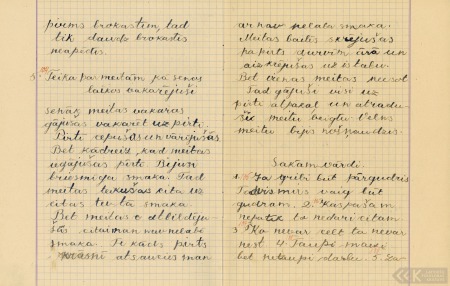 pirms brokastim, tad
tik daudz brokastis
neapēdīs.
5. Teika par meitām kā senos
laikos vakarējuši
senāk meitas vakaros
gājušas vakarēt uz pirti.
Pirtī cepušās un vārījušās
Bet kādreiz, kad meitas
iegājušas pirtī Bijusi
briesmīga smaka. Tad
meitas teikušas cita uz
citas tu tā smako
Bet meitas atbildēju-
šās citai man nav nelabā
smaka. Te kāds pirts
krāsnī atsaucies man
ar nav nelaba smaka.
Meitas bailēs skrējušas
pa pirts durvīm ārā un
aizskrējušas uz istabu.
Bet vienas meitas neesot
Tad gājuši visi uz
pirti atpakaļ un atradu-
šie meitu beigtu Velns
meitu bijis nožņaudzis.
Sakām vārdi.
1. Ja gribi būt pārgudris
Tad vaig būt
gudram. 2. Kas pašam
nepatīk to nedari citam
3. Ko nevar celt to nevar
nest 4. Taupi maizi
bet netaupi darbu. 5. Za-